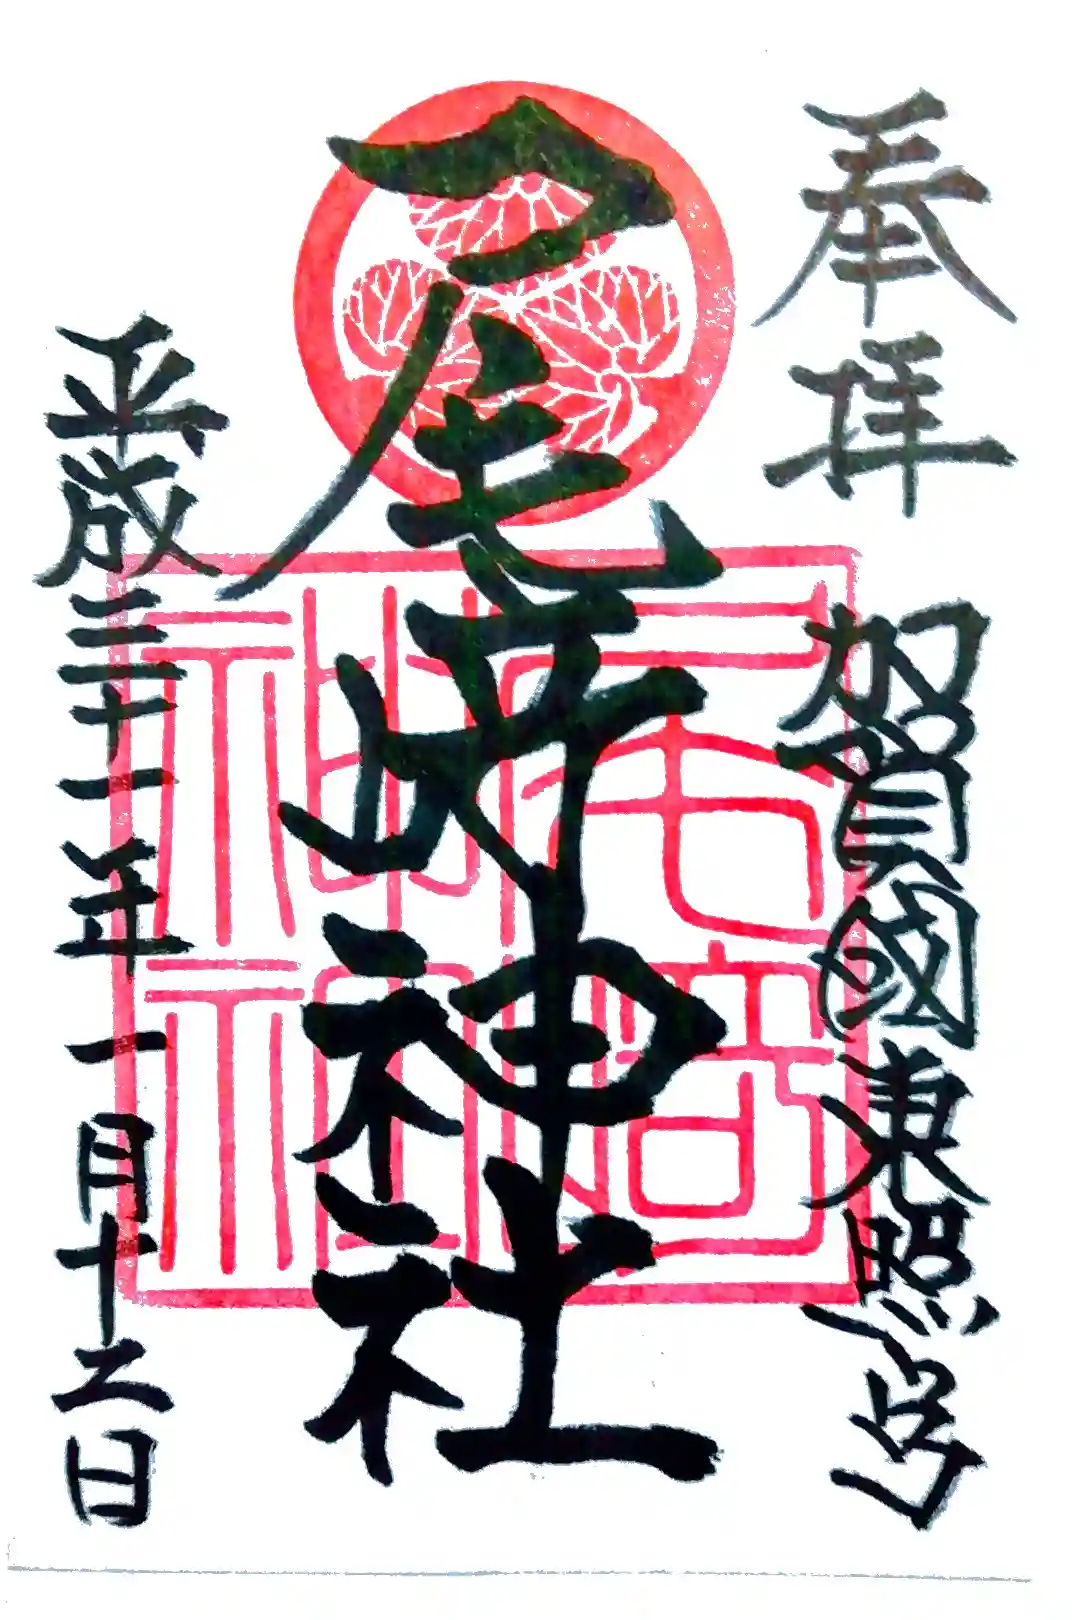 奉拝
加賀國東照宮
尾﨑神社
平成三十一年一月十二日
尾崎
神社